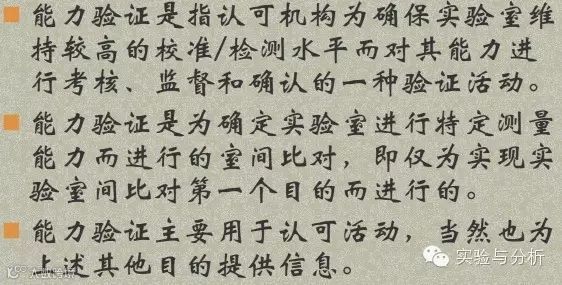 能力验证是指认可机构为确保实验室维
持较高的校准/检测水平而对其能力进
行考核、监督和确认的一种验证活动。
能力验证是为确定实验室进行特定测量
能力而进行的室间比对，即仅为实现实
验室间比对第一个目的而进行的。
能力验证主要用于认可活动，当然也为
上述其他目的提供信息。
实验与分析
大数跨境